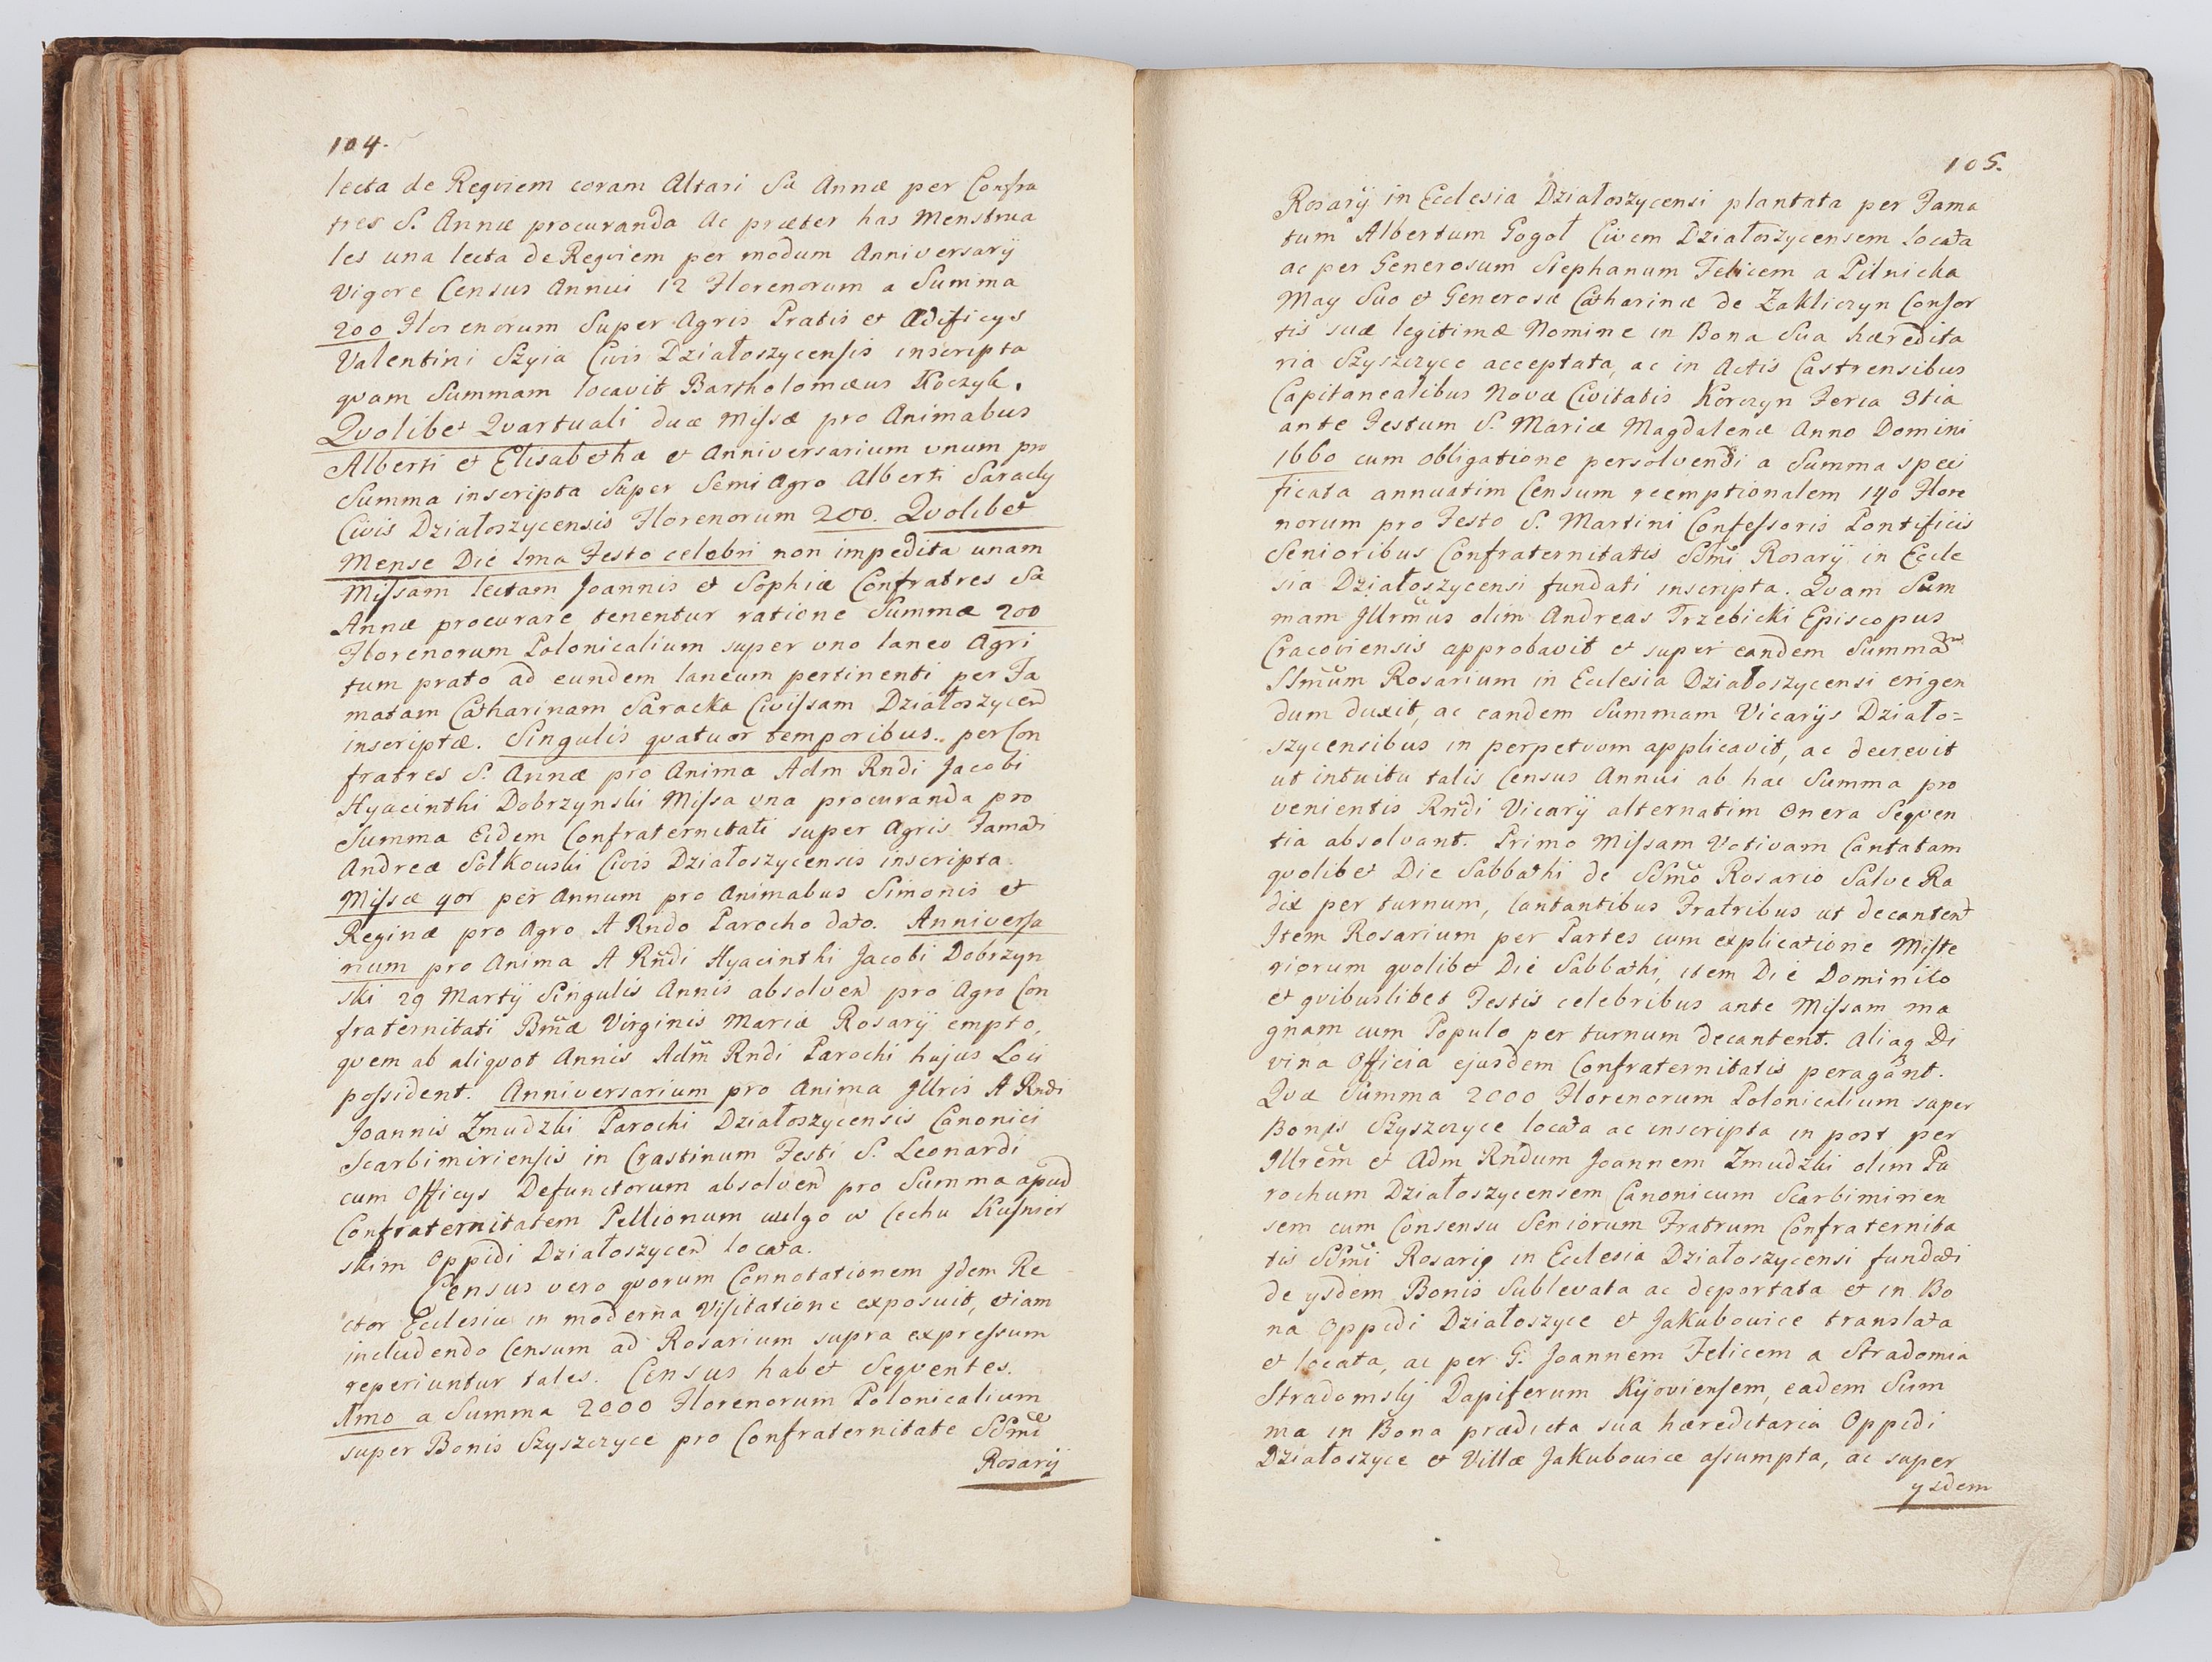 104.
lecta de Reqviem coram Altari Sæ Annæ per Confra
tres S. Annæ procuranda ac præter has Menstrua
les una lecta de Reqviem per modum Anniversarÿ
vigore Census Annui 12 Florenorum a Summa
200 Florenorum Super Agris Pratis et Ædificys
Valentini Szyia Civis Działoszycensis inscripta
qvam Summam locavit Bartholomæus Koczyk.
Qvolibet Qvartuali duæ Missæ pro Animabus
Alberti et Elisabethæ et Anniversarium vnum pro
Summa inscripta Super Semi Agro Alberti Saracky
Civis Działoszycensis Florenorum 200. Qvolibet
Mense Die 1ma Festo celebri non impedita unam
Missam lectam Joannis et Sophiæ Confratres Sæ
Annæ procurare tenentur ratione Summæ 200
Florenorum Polonicalium super vno laneo Agri
tum prato ad eundem laneum pertinenti per Fa
matam Catharinam Saracka Civissam Działoszycen
inscriptæ. Singulis qvatuor temporibus. per Con
fratres S. Annæ pro Anima Adm Rndi Jacobi
Hyacinthi Dobrzynski Missa vna procuranda pro
Summa Eidem Confraternitati super Agris Famati
Andreæ Sołkowski Civis Działoszycensis inscripta.
Missæ 4or per Annum pro Animabus Simonis et
Reginæ pro Agro A Rndo Parocho dato. Anniversa
rium pro Anima A Rndi Hyacinthi Jacobi Dobrzyn
ski 29 Martÿ Singulis Annis absolvend pro Agro Con
fraternitati Bmæ Virginis Mariæ Rosarÿ empto,
qvem ab aliqvot Annis Adm Rndi Parochi hujus Loci
possident. Anniversarium pro Anima Jllris A Rndi
Joannis Zmudzki Parochi Działoszycensis Canonici
Scarbimiriensis in Crastinum Festi S. Leonardi
cum Officys Defunctorum absolvend pro Summa apud
Confraternitatem Pellionum vulgo w Cechu Kusnier
skim Oppidi Działoszycen locata.
Census vero qvorum Connotationem Jdem Re
ctor Ecclesiæ in moderna Visitatione exposuit, etiam
includendo Censum ad Rosarium supra expressum
reperiuntur tales. Census habet Seqventes.
1mo a Summa 2000 Florenorum Polonicalium
super Bonis Szyszczyce pro Confraternitate SSmi
Rosarÿ
105.
Rosarÿ in Ecclesia Działoszycensi plantata per Fama
tum Albertum Gogoł Civem Działoszycensem locata
ac per Generosum Stephanum Felicem a Pilnicka
May Suo et Generosæ Catharinæ de Zakliczyn Consor
tis suæ legitimæ Nomine in Bona Sua hæredita
ria Szyszczyce acceptata, ac in Actis Castrensibus
Capitanealibus Novæ Civitatis Korczyn Feria 3tia
ante Festum S. Mariæ Magdalenæ Anno Domini
1660 cum obligatione persolvendi a Summa speci
ficata annuatim Censum reemptionalem 140 Flore
norum pro Festo S. Martini Confessoris Pontificis
Senioribus Confraternitatis SSmi Rosarÿ in Eccle
sia Działoszycensi fundati inscripta. Qvam Sum
mam Jllrmus olim Andreas Trzebicki Episcopus
Cracoviensis approbavit et super eandem Summam
SSmum Rosarium in Ecclesia Działoszycensi erigen
dum duxit, ac eandem Summam Vicarÿs Działo=
szycensibus in perpetvum applicavit, ac decrevit
ut intuitu talis Census Annui ab hac Summa pro
venientis Rndi Vicarÿ alternatim Onera Seqven
tia absolvant. Primo Missam Votivam Cantatam
qvolibet Die Sabbathi de SSmo Rosario Salve Ra
dix per turnum, Cantantibus Fratribus ut decantent
Jtem Rosarium per Partes cum explicatione Miste
riorum qvolibet Die Sabbathi, item Die Dominico
et qvibuslibet Festis celebribus ante Missam ma
gnam cum Populo per turnum decantent. Aliaq Di
vina Officia ejusdem Confraternitatis peragant.
Qvæ Summa 2000 Florenorum Polonicalium super
Bonis Szyszczyce locata ac inscripta in post per
Jllrem et Adm Rndum Joannem Zmudzki olim Pa
rochum Działoszycensem Canonicum Scarbimirien
sem cum Consensu Seniorum Fratrum Confraternita
tis SSmi Rosarÿ in Ecclesia Działoszycensi fundati
de ysdem Bonis Sublevata ac deportata et in Bo
na Oppidi Działoszyce et Jakubowice translata
et locata, ac per G. Joannem Felicem a Stradomia
Stradomsky Dapiferum Kijoviensem, eadem Sum
ma in Bona prædicta sua hæreditaria Oppidi
Działoszyce et Villæ Jakubowice assumpta, ac super
ysdem